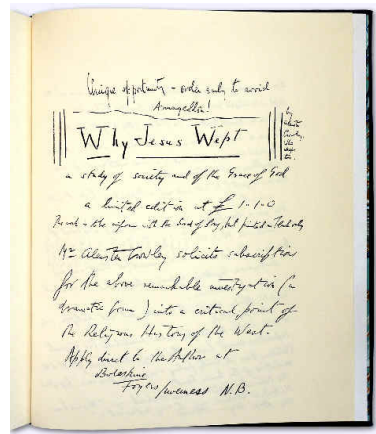 Unique opportunity – order early to avoid
Armageddon!
Why Jesus Wept
by
Aleister
Crowley
a study of society and of the Grace of God
a limited edition at £ 1-1-0
This work is uniform with the Sword of Song, but printed in black only
Mr Aleister Crowley solicits subscriptions
for the above remarkable investigation (in
dramatic form) into a critical point of
the Religious History of the West.
Apply direct to the Author at
Boleskine
Foyers Inverness N.B.